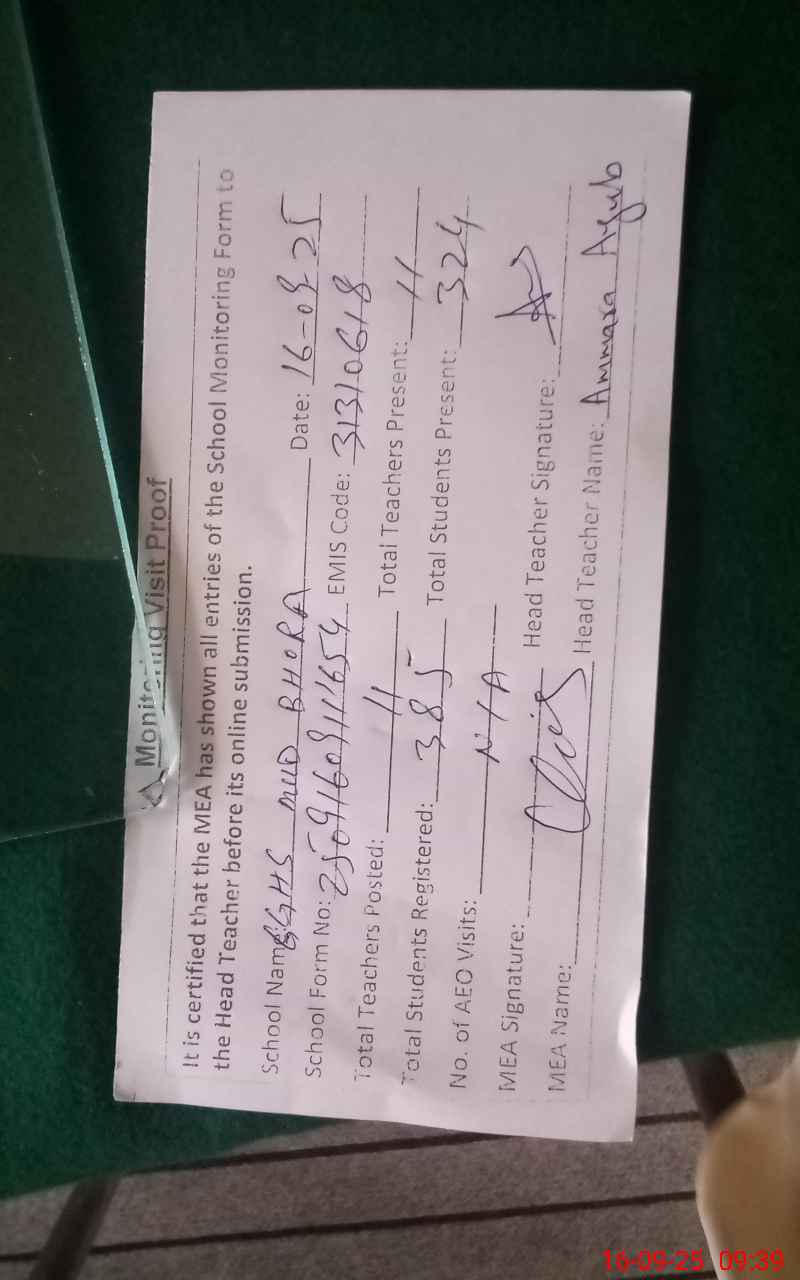 Monitoring Visit Proof
It is certified that the MEA has shown all entries of the School Monitoring Form to
the Head Teacher before its online submission.
School Name: GGHS MUD BHORA Date: 16-09-25
School Form No: 25091609111654 EMIS Code: 31310618
Total Teachers Posted: 11 Total Teachers Present: 11
Total Students Registered: 385 Total Students Present: 324
No. of AEO Visits: N/A
MEA Signature: Head Teacher Signature:
MEA Name: Head Teacher Name: Ammara Ayub
16-09-25 09:39